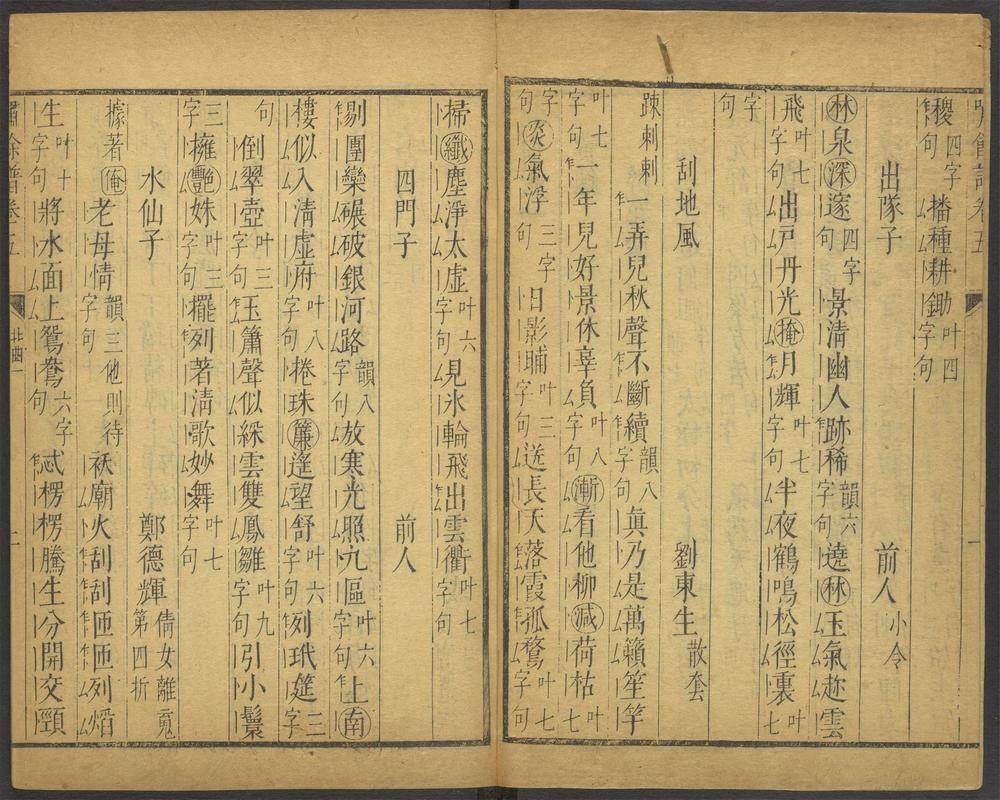 稷四字句播種耕鋤叶四字句
出隊子 前人小令
林泉深邃四字句景清幽人跡稀韻六字句遶林玉氣趂雲
飛叶七字句出戸丹光掩月輝叶七字句半夜鶴鳴松徑裏叶七
字句
刮地風 劉東生散套
踈剌剌一弄兒秋聲不斷續韻八字句眞乃是萬籟笙竽
叶七字句一年兒好景休辜負叶八字句漸看他柳減荷枯叶七
字句炎氣浮三字句日影晡叶三字句送長天落霞孤鶩叶七字句
四門子 前人
掃纖塵淨太虛叶六字句見氷輪飛出雲衢叶七字句
剔團欒碾破銀河路韻八字句放寒光照九區叶六字句上南
樓似入清虛府叶八字句捲珠簾遙望舒叶六字句列玳筵三字
句倒翠壺叶三字句玉簫聲似綵雲雙鳳雛叶九字句引小鬟
三字句擁豔姝叶三字句擺列著淸歌妙舞叶七字句
水仙子 鄭德輝倩女離䰟第四折
據著俺老母情韻三字句他則待祅廟火刮刮匝匝列熖
生叶十字句將水面上鴛鴦六字句忒楞楞騰生分開交頸
嘯餘譜卷五 北曲一 二